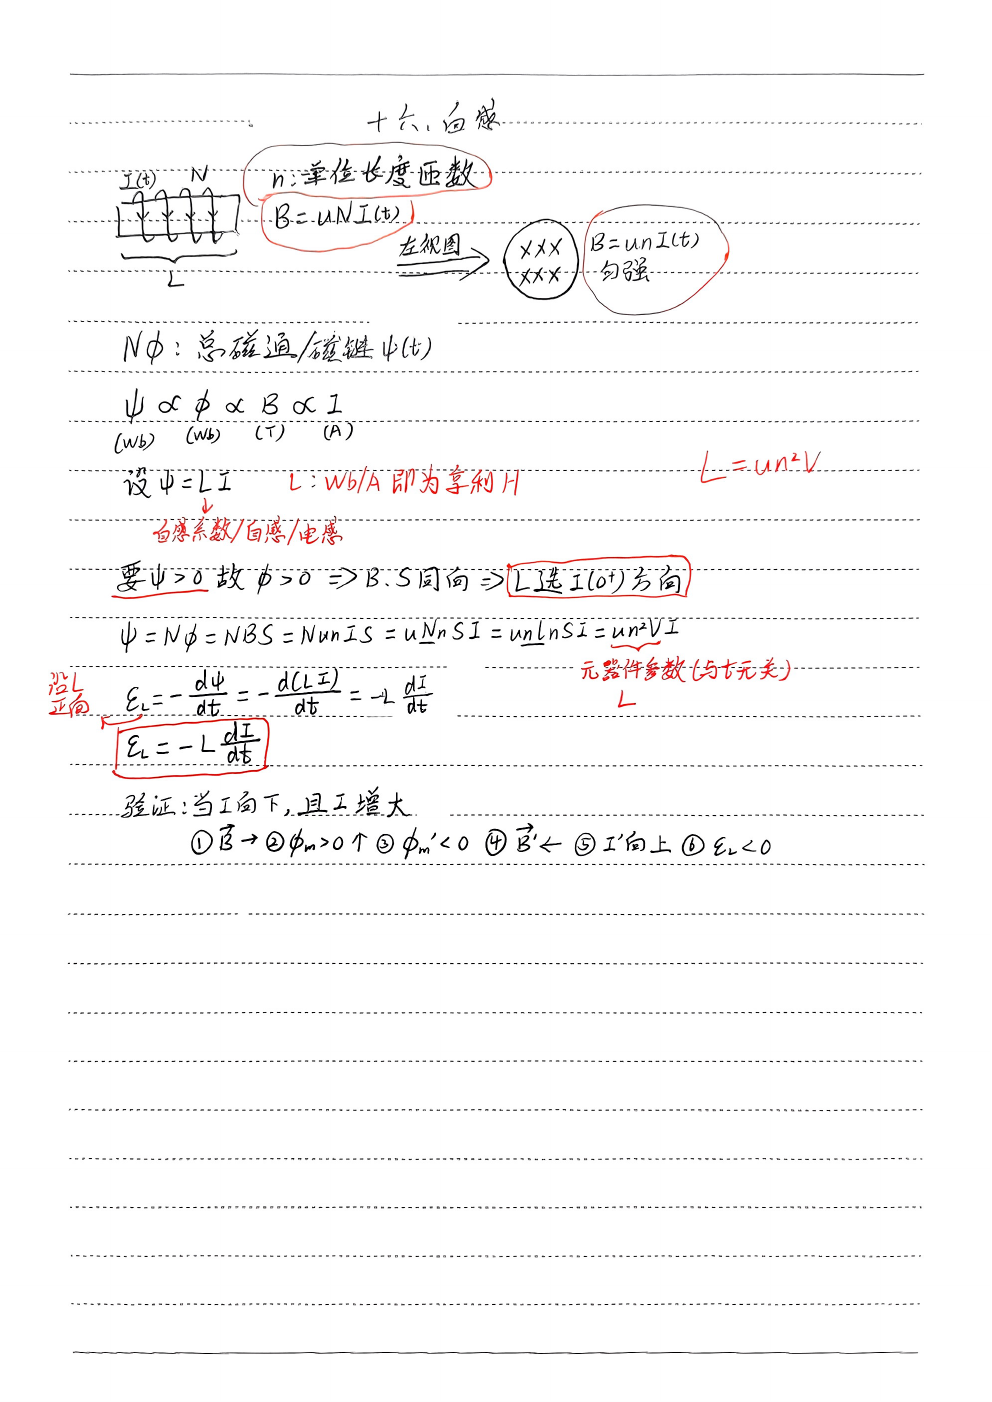 十六、自感
I(t) N n:单位长度匝数
B=uNI(t)
L
左视图
xxx
xxx
B=unI(t)
匀强
Nφ:总磁通/磁链ψ(t)
ψ ∝ φ ∝ B ∝ I
(Wb) (Wb) (T) (A)
设ψ=LI L:Wb/A 即为享利H L=un²V
自感系数/自感/电感
要ψ>0 故 φ>0 => B.S同向 => L选I(0⁺)方向
ψ=Nφ=NBS=NunIS=uNnSI=unlnSI=un²VI
元器件参数(与t无关)
L
沿L
正向
ε_L=-dψ/dt=-d(LI)/dt=-L dI/dt
ε_L=-L dI/dt
验证:当I向下,且I增大
①B⃗→ ②φm>0↑ ③φm'<0 ④B⃗'← ⑤I'向上 ⑥ε_L<0